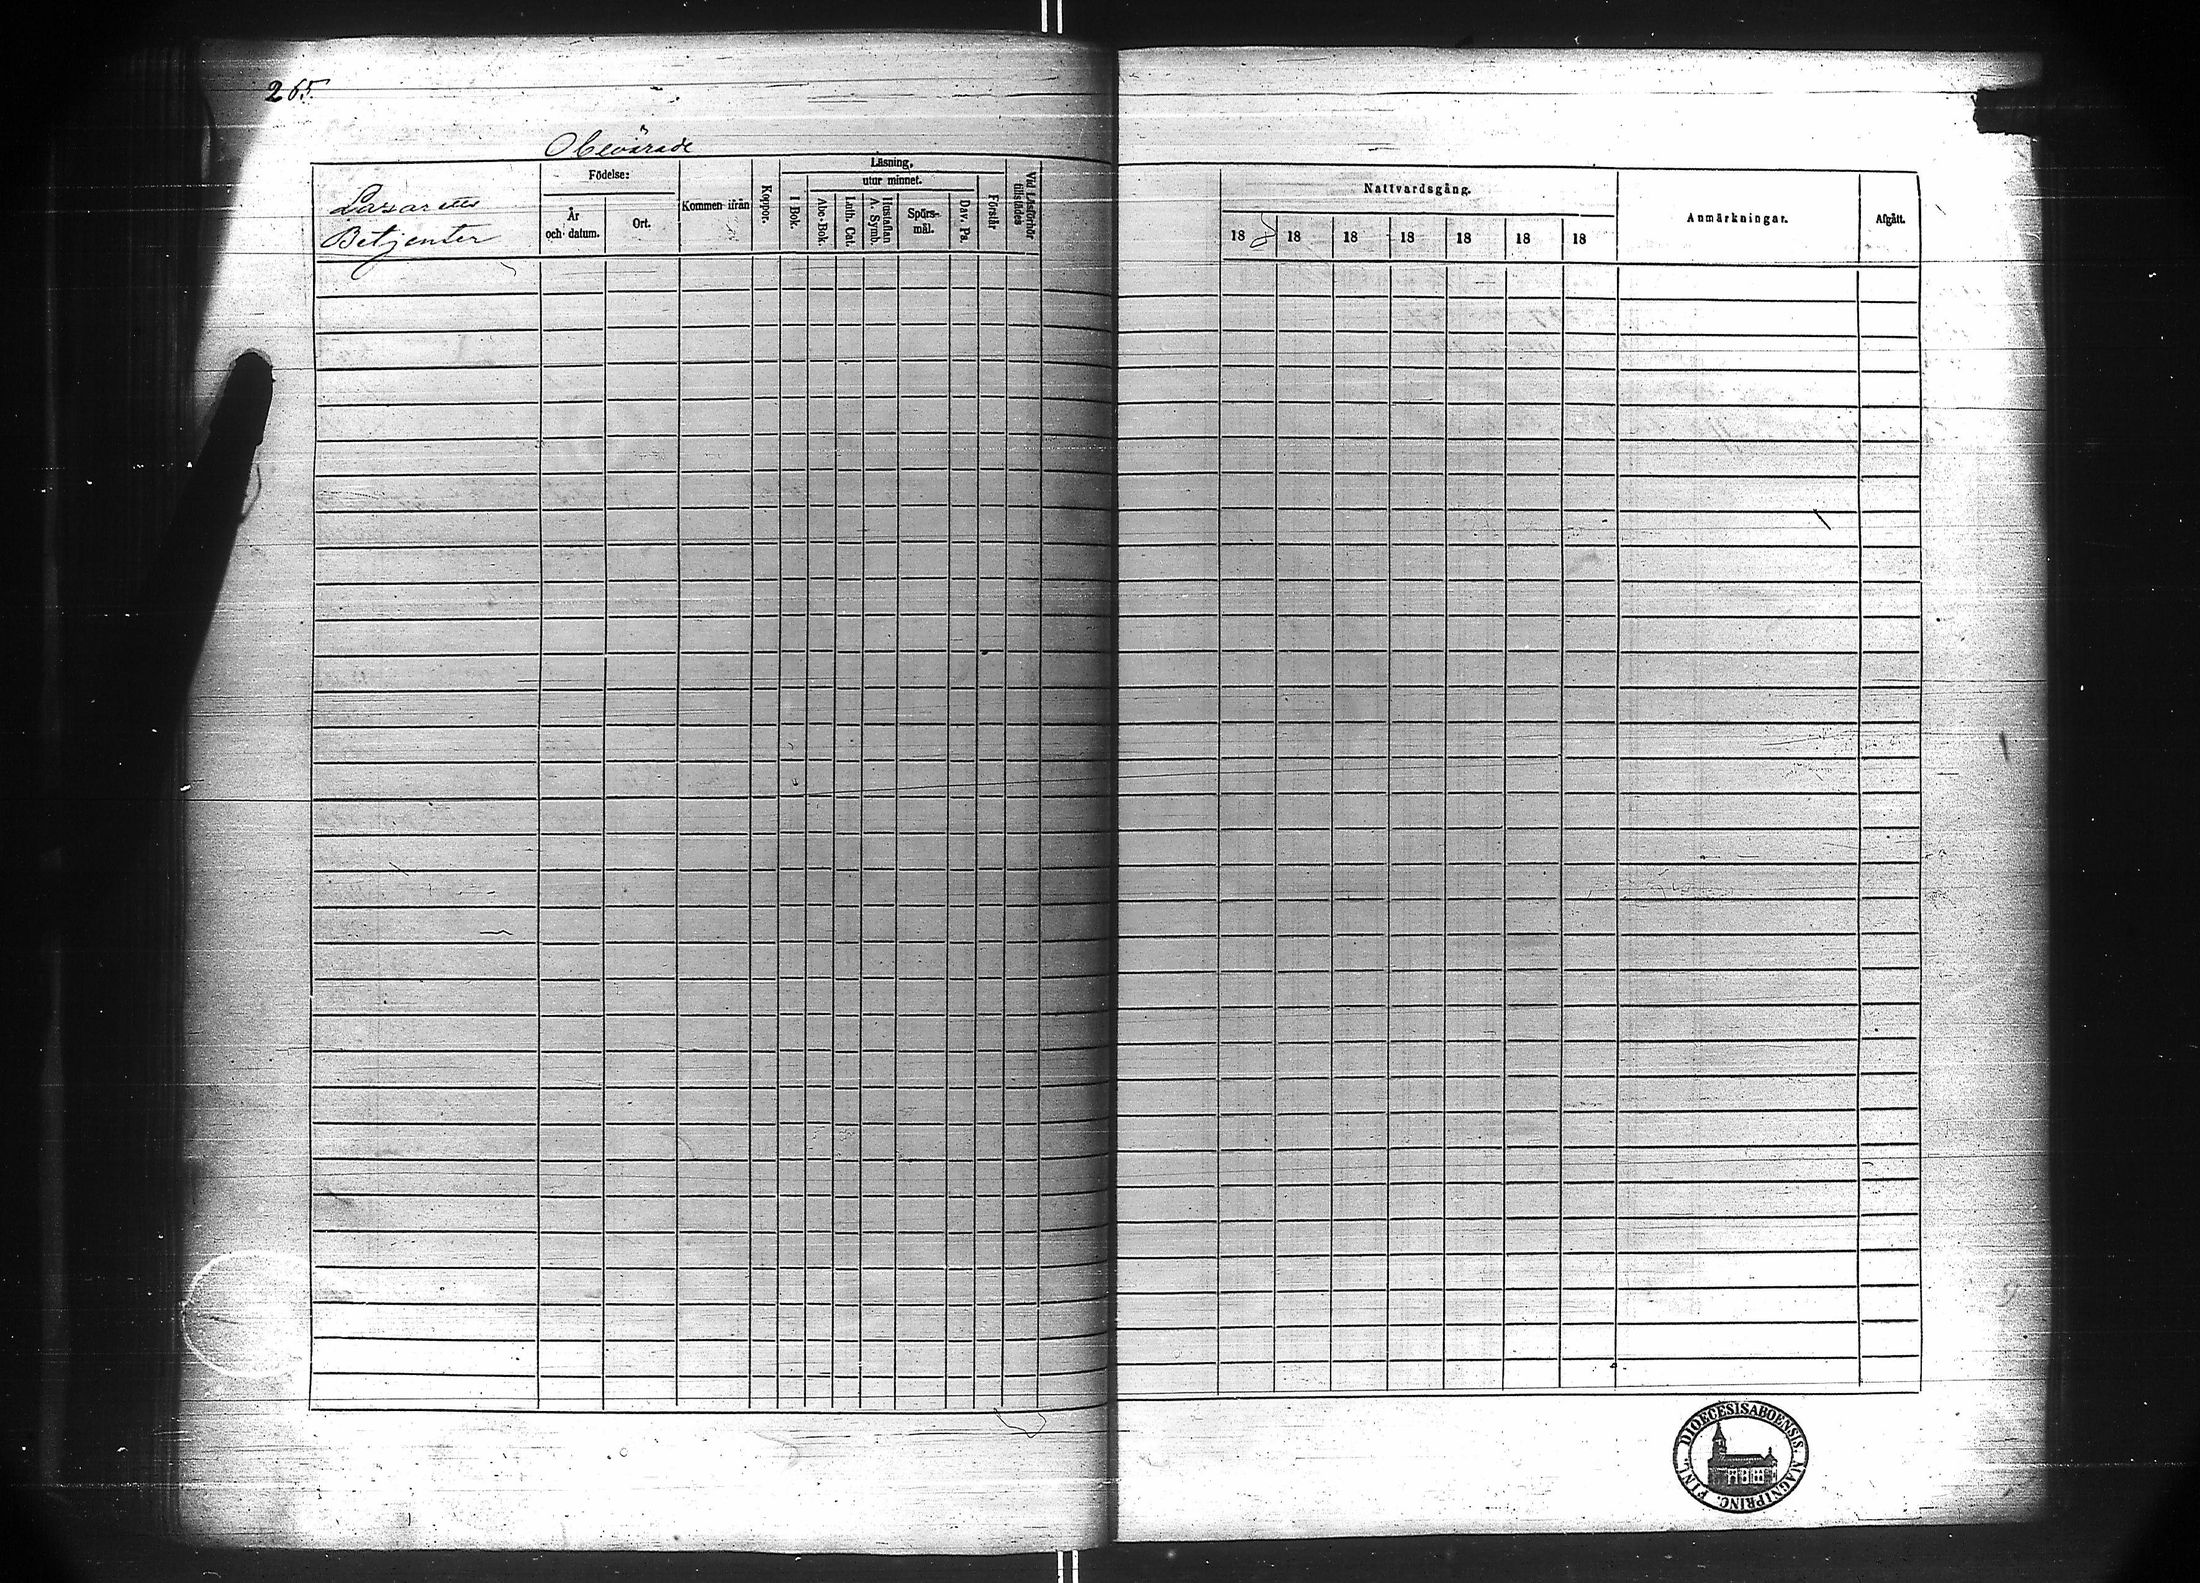 265.
Obevärade
Lasaretts
Betjenter
Födelse:
År
och datum.
Ort.
Kommen ifrån
Koppor.
Läsning,
utur minnet.
I Bok.
Abc-Bok.
Luth. Cat.
Hustaflan
A. Symb.
Spörs-
mål.
Dav. Ps.
Förstår
Vid Läsförhör
tillstädes
Nattvardsgång.
18 18 18 18 18 18 18
Anmärkningar.
Afgått.
DIOECESISABOENSIS. MAGNIPRINC. FINL.